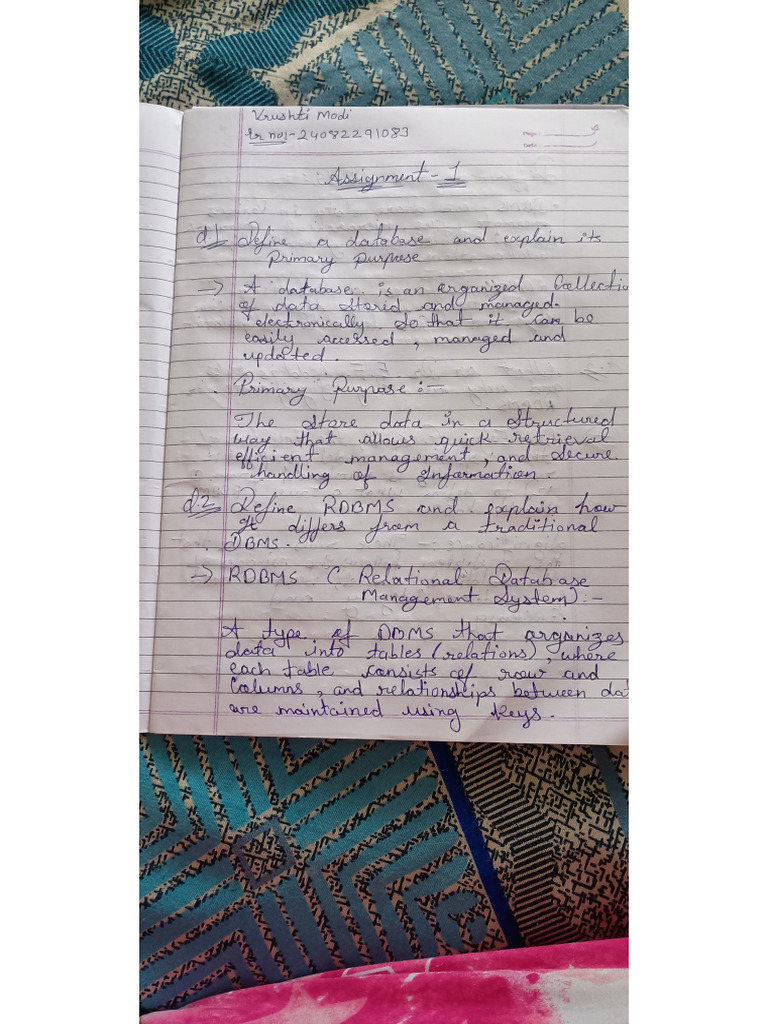 Krushti Modi
Er no:-24082291083
Page :
Date :
Assignment - 1
Q.1 Define a database and explain its
Primary Purpose
→ A database is an organized Collectio
of data stored and managed
electronically so that it can be
easily accessed, managed and
updated.
Primary Purpose :-
The store data in a structured
way that allows quick retrieval
efficient management, and secure
handling of Information.
Q.2 Define RDBMS and explain how
It differs from a traditional
DBMS.
→ RDBMS ( Relational Database
Management System) :-
A type of DBMS that organizes
data into tables (relations), where
each table consists of row and
Columns, and relationships between dat
are maintained using keys.